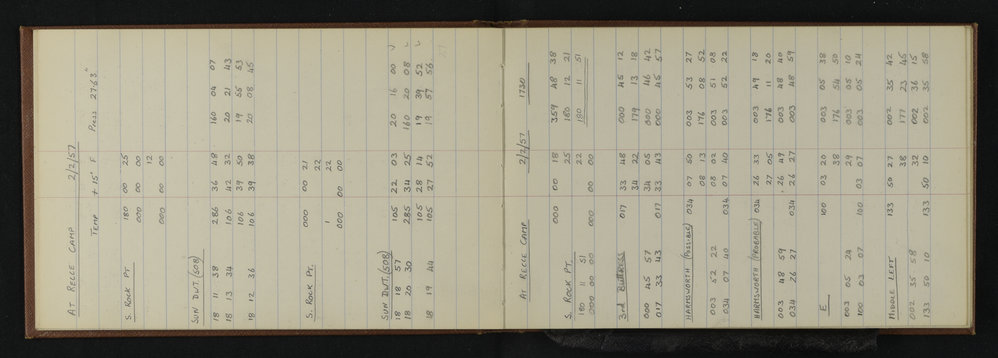 AT RECCE CAMP 2/2/57
TEMP + 15° F Press 27.63"
S. ROCK PT. 180 00 25
000 00 00
12
000 00 00
SUN DWT. (SOB)
18 11 38 286 36 48 160 04 07
18 13 34 106 42 32 20 21 43
106 39 50 19 55 53
18 12 36 106 39 38 20 08 45
S. ROCK PT. 000 00 21
22
1 22
000 00 00
SUN DWT. (SOB)
18 18 57 105 22 03 20 16 00
18 20 30 285 34 25 160 20 08
105 28 14 19 39 52
18 19 44 105 27 52 19 57 56
AT RECCE CAMP 2/2/57 1730
000 00 18 359 48 38
S. ROCK PT. 25 180 12 21
180 11 51 22 180 11 51
000 00 00 000 00
3rd BUTTRESS 017 33 48 000 45 12
34 22 179 13 18
000 45 57 34 05 000 46 42
017 33 43 017 33 43 000 45 57
HARMSWORTH (POSSIBLE) 034 07 50 003 53 27
08 13 176 08 52
003 52 22 08 02 003 51 08
034 07 40 034 07 40 003 52 22
HARMSWORTH (PROBABLE) 034 26 33 003 49 18
27 05 176 11 20
003 48 59 26 49 003 48 40
034 26 27 034 26 27 003 48 59
E 100 03 20 003 05 38
38 176 54 50
003 05 24 29 003 05 10
100 03 07 100 03 07 003 05 24
MIDDLE LEFT 133 50 27 002 35 42
38 177 23 45
002 35 58 32 002 36 15
133 50 10 133 50 10 002 35 58